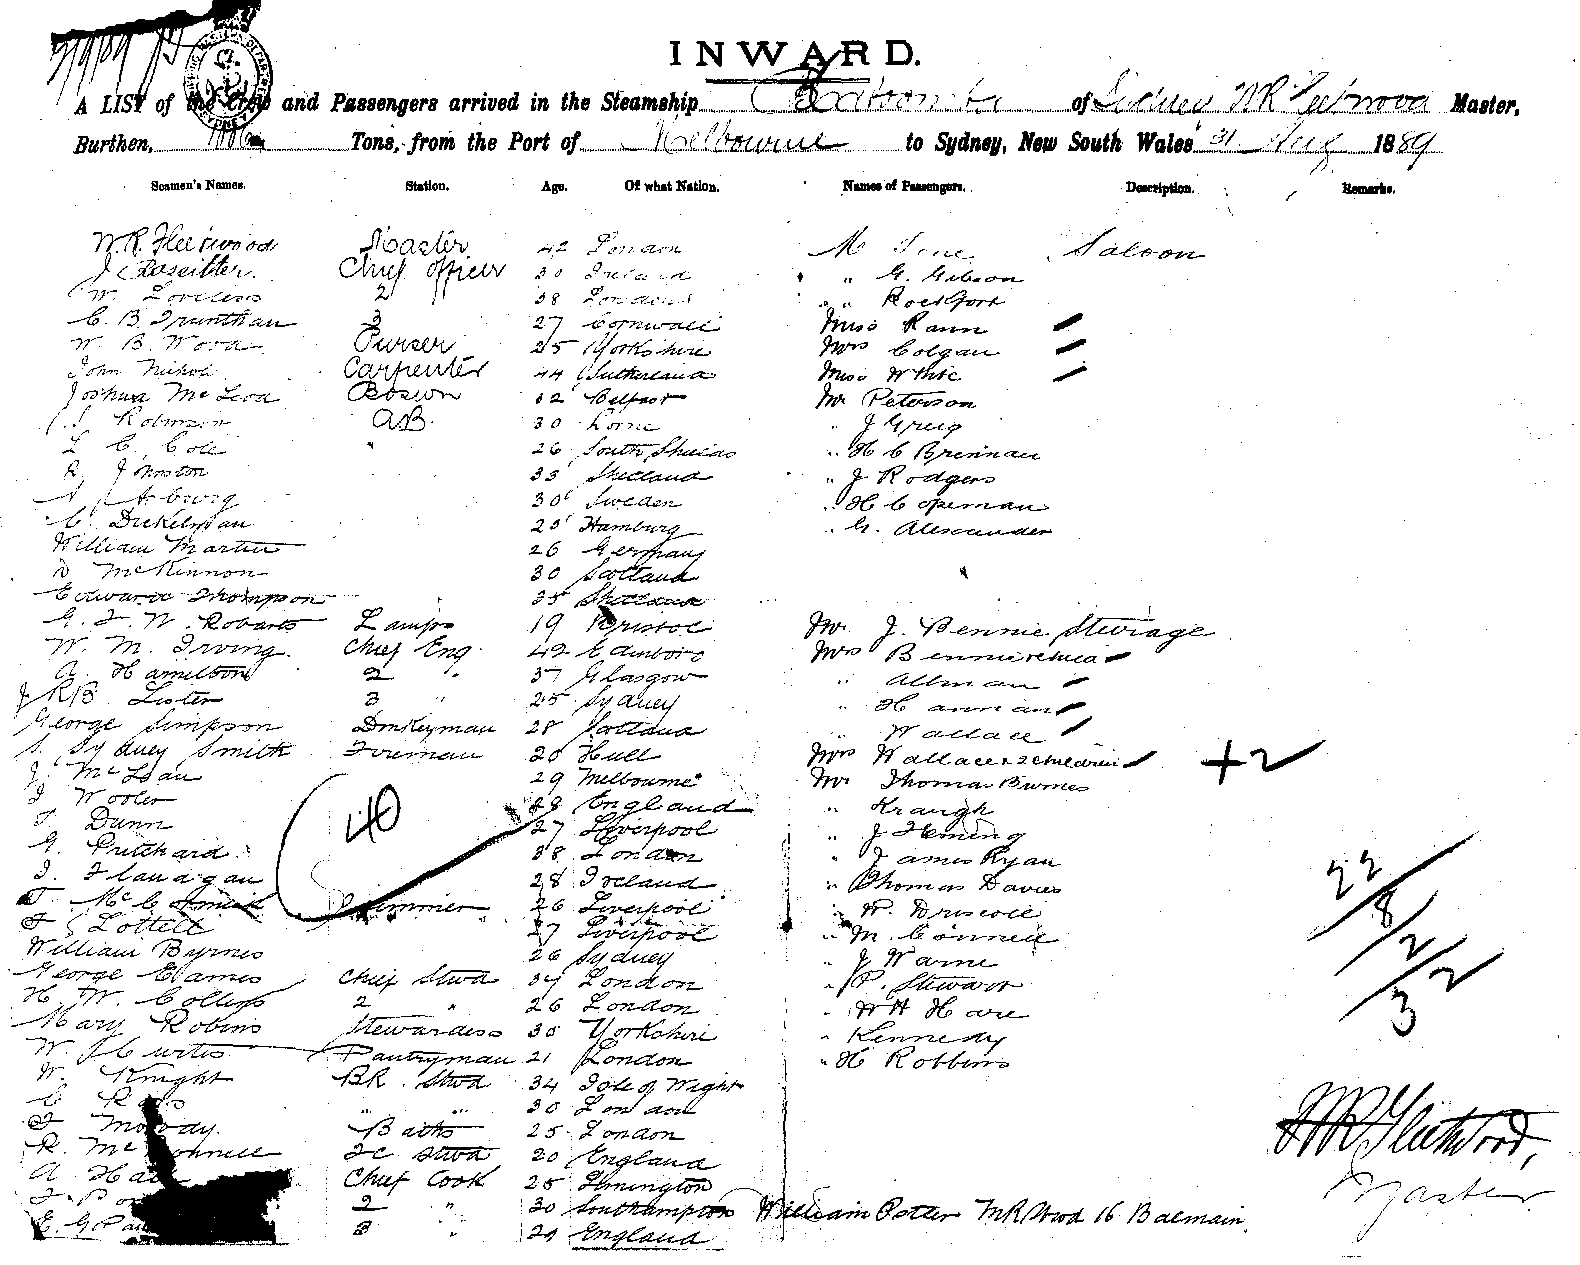 INWARD.
A LIST of the Crew and Passengers arrived in the Steamship of Sidney W R Fleetwood Master,
Burthen, Tons, from the Port of Melbourne to Sydney, New South Wales 31 Aug 1889
Seamen's Names. Station. Age. Of what Nation. Names of Passengers. Description. Remarks.
W. R. Fleetwood Master 42 London M Saloon
J Rossitter. Chief Officer 30 Ireland " G. Gibson
W. Loveless 2 38 London " Rockfort
C. B. 3 27 Cornwall Miss Rann
W. B. Wood Purser 25 Yorkshire Mrs Colgan
John Nichol Carpenter 44 Sutherland Miss White
Joshua McLeod Bosun 32 Belfast Mr Peterson
Robinson AB. 30 Lorne " J Greig
L C. Cole " 26 South Shields " H C Brennan
R. Johnston 33 Shetland " J Rodgers
30 Sweden " H Copeman
C. Dickelman 25 Hamburg " G. Alexander
William Martin 26 Germany
D McKinnon 30 Scotland
Edward Thompson 35 Shetland
G. F. W. Robarts Lamps 19 Bristol Mr. J. Bennie Steerage
W. M. Irving. Chief Eng. 42 Edinboro Mrs Bennie & child
A Hamilton 2 " 37 Glasgow " Allman
J R B Lister 3 " 25 Sydney " Hannan
George Simpson Donkeyman 28 Scotland " Wallace
S. Sydney Smith Fireman 20 Hull Mrs Wallace & 2 children +2
J. McLean 29 Melbourne Mr Thomas Burnes
J Wooler England " Kraugh
T Dunn 40 27 Liverpool " J Fleming
G. Pritchard 38 London " James Ryan
J. Flanagan 28 Ireland " Thomas Davies
J. Trimmer 26 Liverpool " W. Driscoll
27 Liverpool " M. Connell
William Byrnes 26 Sydney " J Warne
George Eames Chief Stwd 34 London " P. Stewart
H. W. Collings 2 " 26 London " W H Hare
Mary Robins Stewardess 35 Yorkshire " Kennedy
W. J Curtis Pantryman 21 London " H Robbins
W. Knight BR. Stwd 34 Isle of Wight
C " " 30 London
T Moody. Baths 25 London
R. Stwd 20 England
A Chief Cook 25 Lemington
2 " 30 Southampton William Potter MR Stwd 16 Balmain.
E. G 3 " 29 England
22
8
2
2
3
W R Fleetwood,
Master